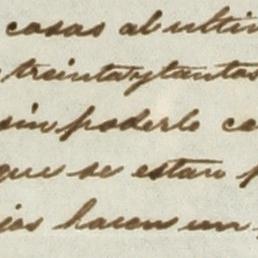 casas al ultim
treinta y tantos
sin poderlo co
que se estan p
jos hacen un